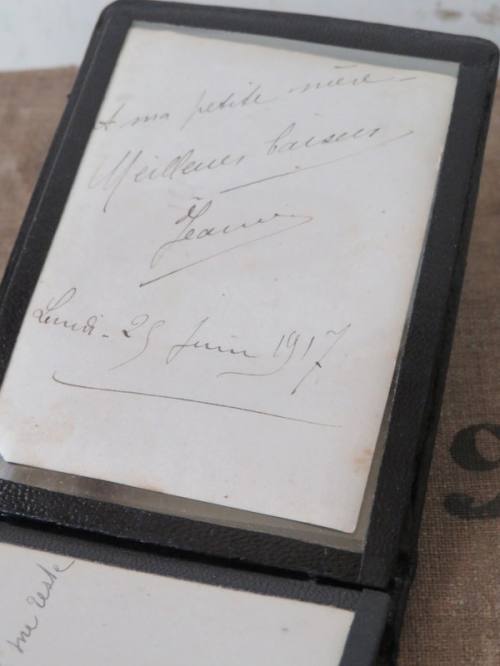 A ma petite mère -
Meilleurs baisers
Jeanne
Lundi - 25 Juin 1917
me reste
9